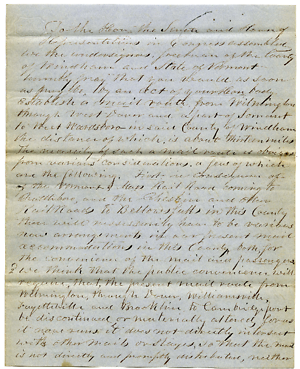 To the Hon. the Senate and House of
Representatives in Congress assembled
We the undersigned, Citizens of the County
of Windham and State of Vermont
humbly pray that you would as soon
as possible, by an act of your Hon. body
establish a direct route, from Wilmington
through West Dover and a part of Somerset
to West Wardsboro in said County of Windham
the distance of which, is about thirteen miles
The necessity of such
from various considerations, a few of which
are the following. First in consequence
of the Vermont & Mass Rail Road coming to
Brattleboro, and the and other
Rail Roads to Bellows falls in this County
there will necessarily have to be various
new arrangements of our present mail
accommodations in this County both for
the convenience of the mail and passengers
We think that the public convenience will
require, that, the present mail route from
Wilmington, through Dover, Williamsville,
Fayetteville and Brooklin to Cambridgeport
be discontinued or materially altered, for as
it now runs it does not directly intersect
with other Mails or Stages, so that the mail
is not directly and promptly distributed, neither